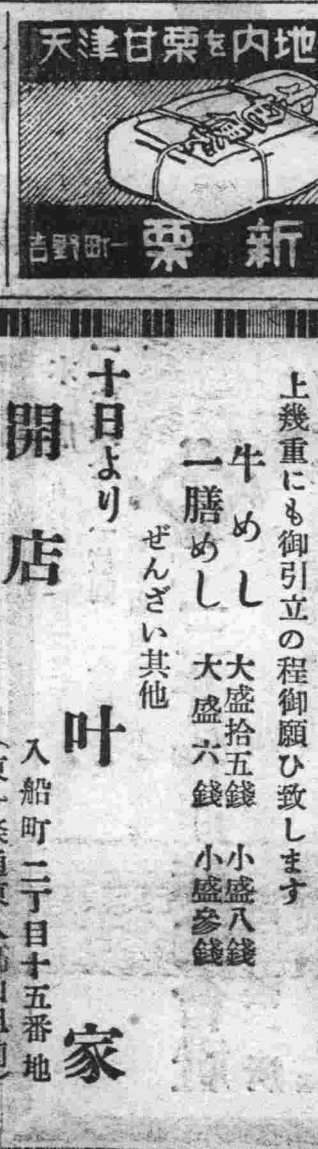 天津甘栗を内地
新栗
上幾重にも御引立の程御願ひ致します
牛めし 大盛拾五錢 小盛八錢
一膳めし 大盛六錢 小盛參錢
ぜんざい其他
十日より
開店
叶家
入船町二丁目十五番地